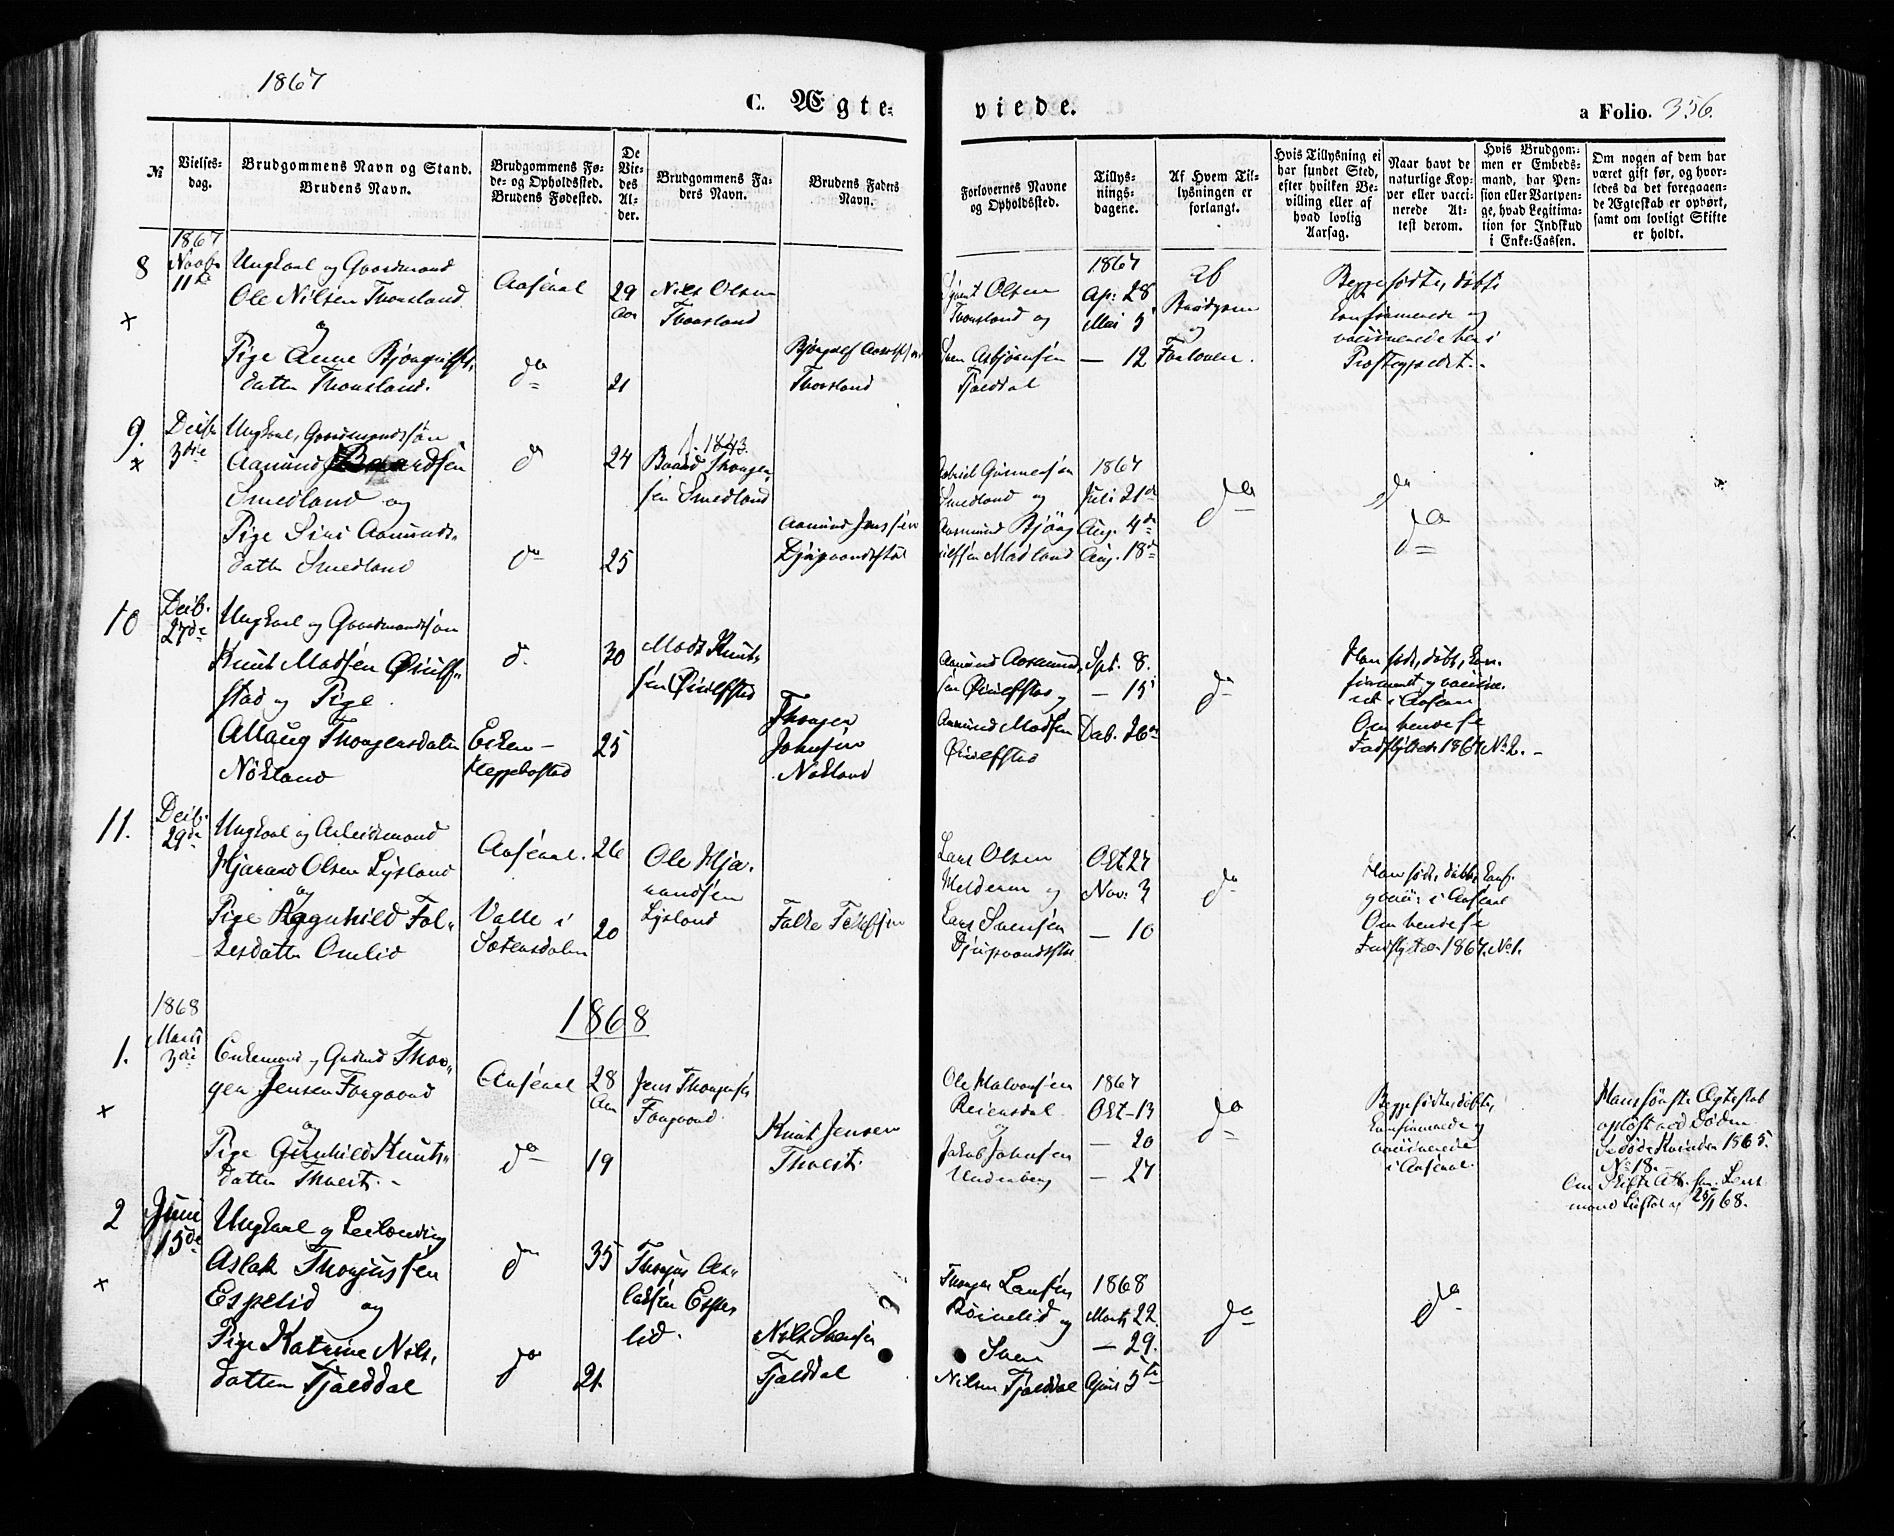 1867
C. Ægte-
viede.
a Folio. 356.
№
Vielses-
dag.
Brudgommens Navn og Stand.
Brudens Navn.
Brudgommens Fø-
de- og Opholdssted.
Brudens Fødested.
De
Vie-
des
Al-
der.
Brudgommens Fa-
ders Navn.
Brudens Faders
Navn.
Forlovernes Navne
og Opholdssted.
Tillys-
nings-
dagene.
Af Hvem Til-
lysningen er
forlangt.
Hvis Tillysning ei
har fundet Sted,
efter hvilken Be-
villing eller af
hvad lovlig
Aarsag.
Naar havt de
naturlige Kop-
per eller vacci-
nerede At-
test derom.
Hvis Brudgom-
men er Embeds-
mand, har Pen-
sion eller Vartpen-
ge, hvad Legitima-
tion for Indskud
i Enke-Cassen.
Om nogen af dem har
været gift før, og hvor-
ledes da det foregaaen-
de Ægteskab er ophørt,
samt om lovligt Skifte
er holdt.
8
1867
11te
Ungkarl og Gaardmand
Ole Nilsen Thorsland
og
Pige Anne Bjøngulfs-
datter Thorsland.
Aaseral
do
29
Aar
21
Nils Olsen
Thorsland
Thorsland
Olsen
Thorsland og
Sven Asbjørnsen
Tjalddal
1867
Ap: 28
Mai 5
— 12
Af
Brudgom
og
Forlover.
Begge fødte, døbte
confirmerede og
vaccinerede her i
Præstegjeldet.
9.
3die
Ungkarl, Gaardmandssøn
Aamund Baardsen
Smedland og
Pige Siri Aamunds-
datter Smedland
do
24
do
25
1843.
Baard Thorger-
sen Smedland
Aamund Jenssen
Gabriel Gunnersøn
Smedland og
Aasmund Bjøng
ulfsen Madland
1867
Juli 21de
Aug. 4de
Aug. 18de
do
do
do
10
Decb.
27de
Ungkarl og Gaardmandssøn
Knut Madsen Øviulf-
stad og Pige
Allaug Thorgersdatter
Nökland
d.
30
Eiken –
Heggebostad
25
Mads Knut-
sen
Thorger
Johnsen
Nökland
Aamund Aasmund-
sen
og
Aamund Madsen
Spt. 8.
— 15
Dcb. 26de
do
Han født, døbt, con-
firmeret og vaccine-
ret i Aaseral
Om hende se
Indflyttede 1867 № 2.
11.
Decb.
29de
Ungkarl og Arbeidsmand
Hjarand Olsen Lysland
og
Pige Aagnhild Fal-
kesdatter Omlid
Aaseral.
26
Valle i
Sætersdalen
20
Ole Hja-
randsen
Lysland
Falke
Lars Olsen
og
Lars Svensen
Okt 27
Nov: 3
— 10
do
Han født, døbt, Conf.
g vacci. i Aaseral
Om hende se
Indflyttede 1867. № 1.
1868
1868
1.
Marts
3die
Enkemand og Thor-
ger Jensen Fosgaard
og
Pige Gunhild Knuts-
datter Thvest.
Aaseral
28
Aar
do
19
Jens Thorgersen
Knut Jensen
Thvest.
Ole Halvorsen
Reiersdal
og
Jakob Johnsen
1867
Okt — 13
— 20
— 27
do
Begge fødte, døbte,
confirmerede og
vaccinerede
i Aaseral
Hans første Ægteskab
opløst ved Døden
se døde Kvinder 1865.
№ 18.
Om Skifte Att. fra Lens-
mand 25/1 68.
2
Juni
15de
Ungkarl og Leilænding
Aslak Thorjussen
Espelid og
Pige Katrine Nils-
datter Tjalddal
do
35
do
21.
Thorjus As-
laksen Espe-
lid.
Nils Svensen
Tjalddal
Thorger Larsen
Røinelid og
Sven
Nilsen Tjalddal
1868
Marts 22
— 29.
April 5te
do
do